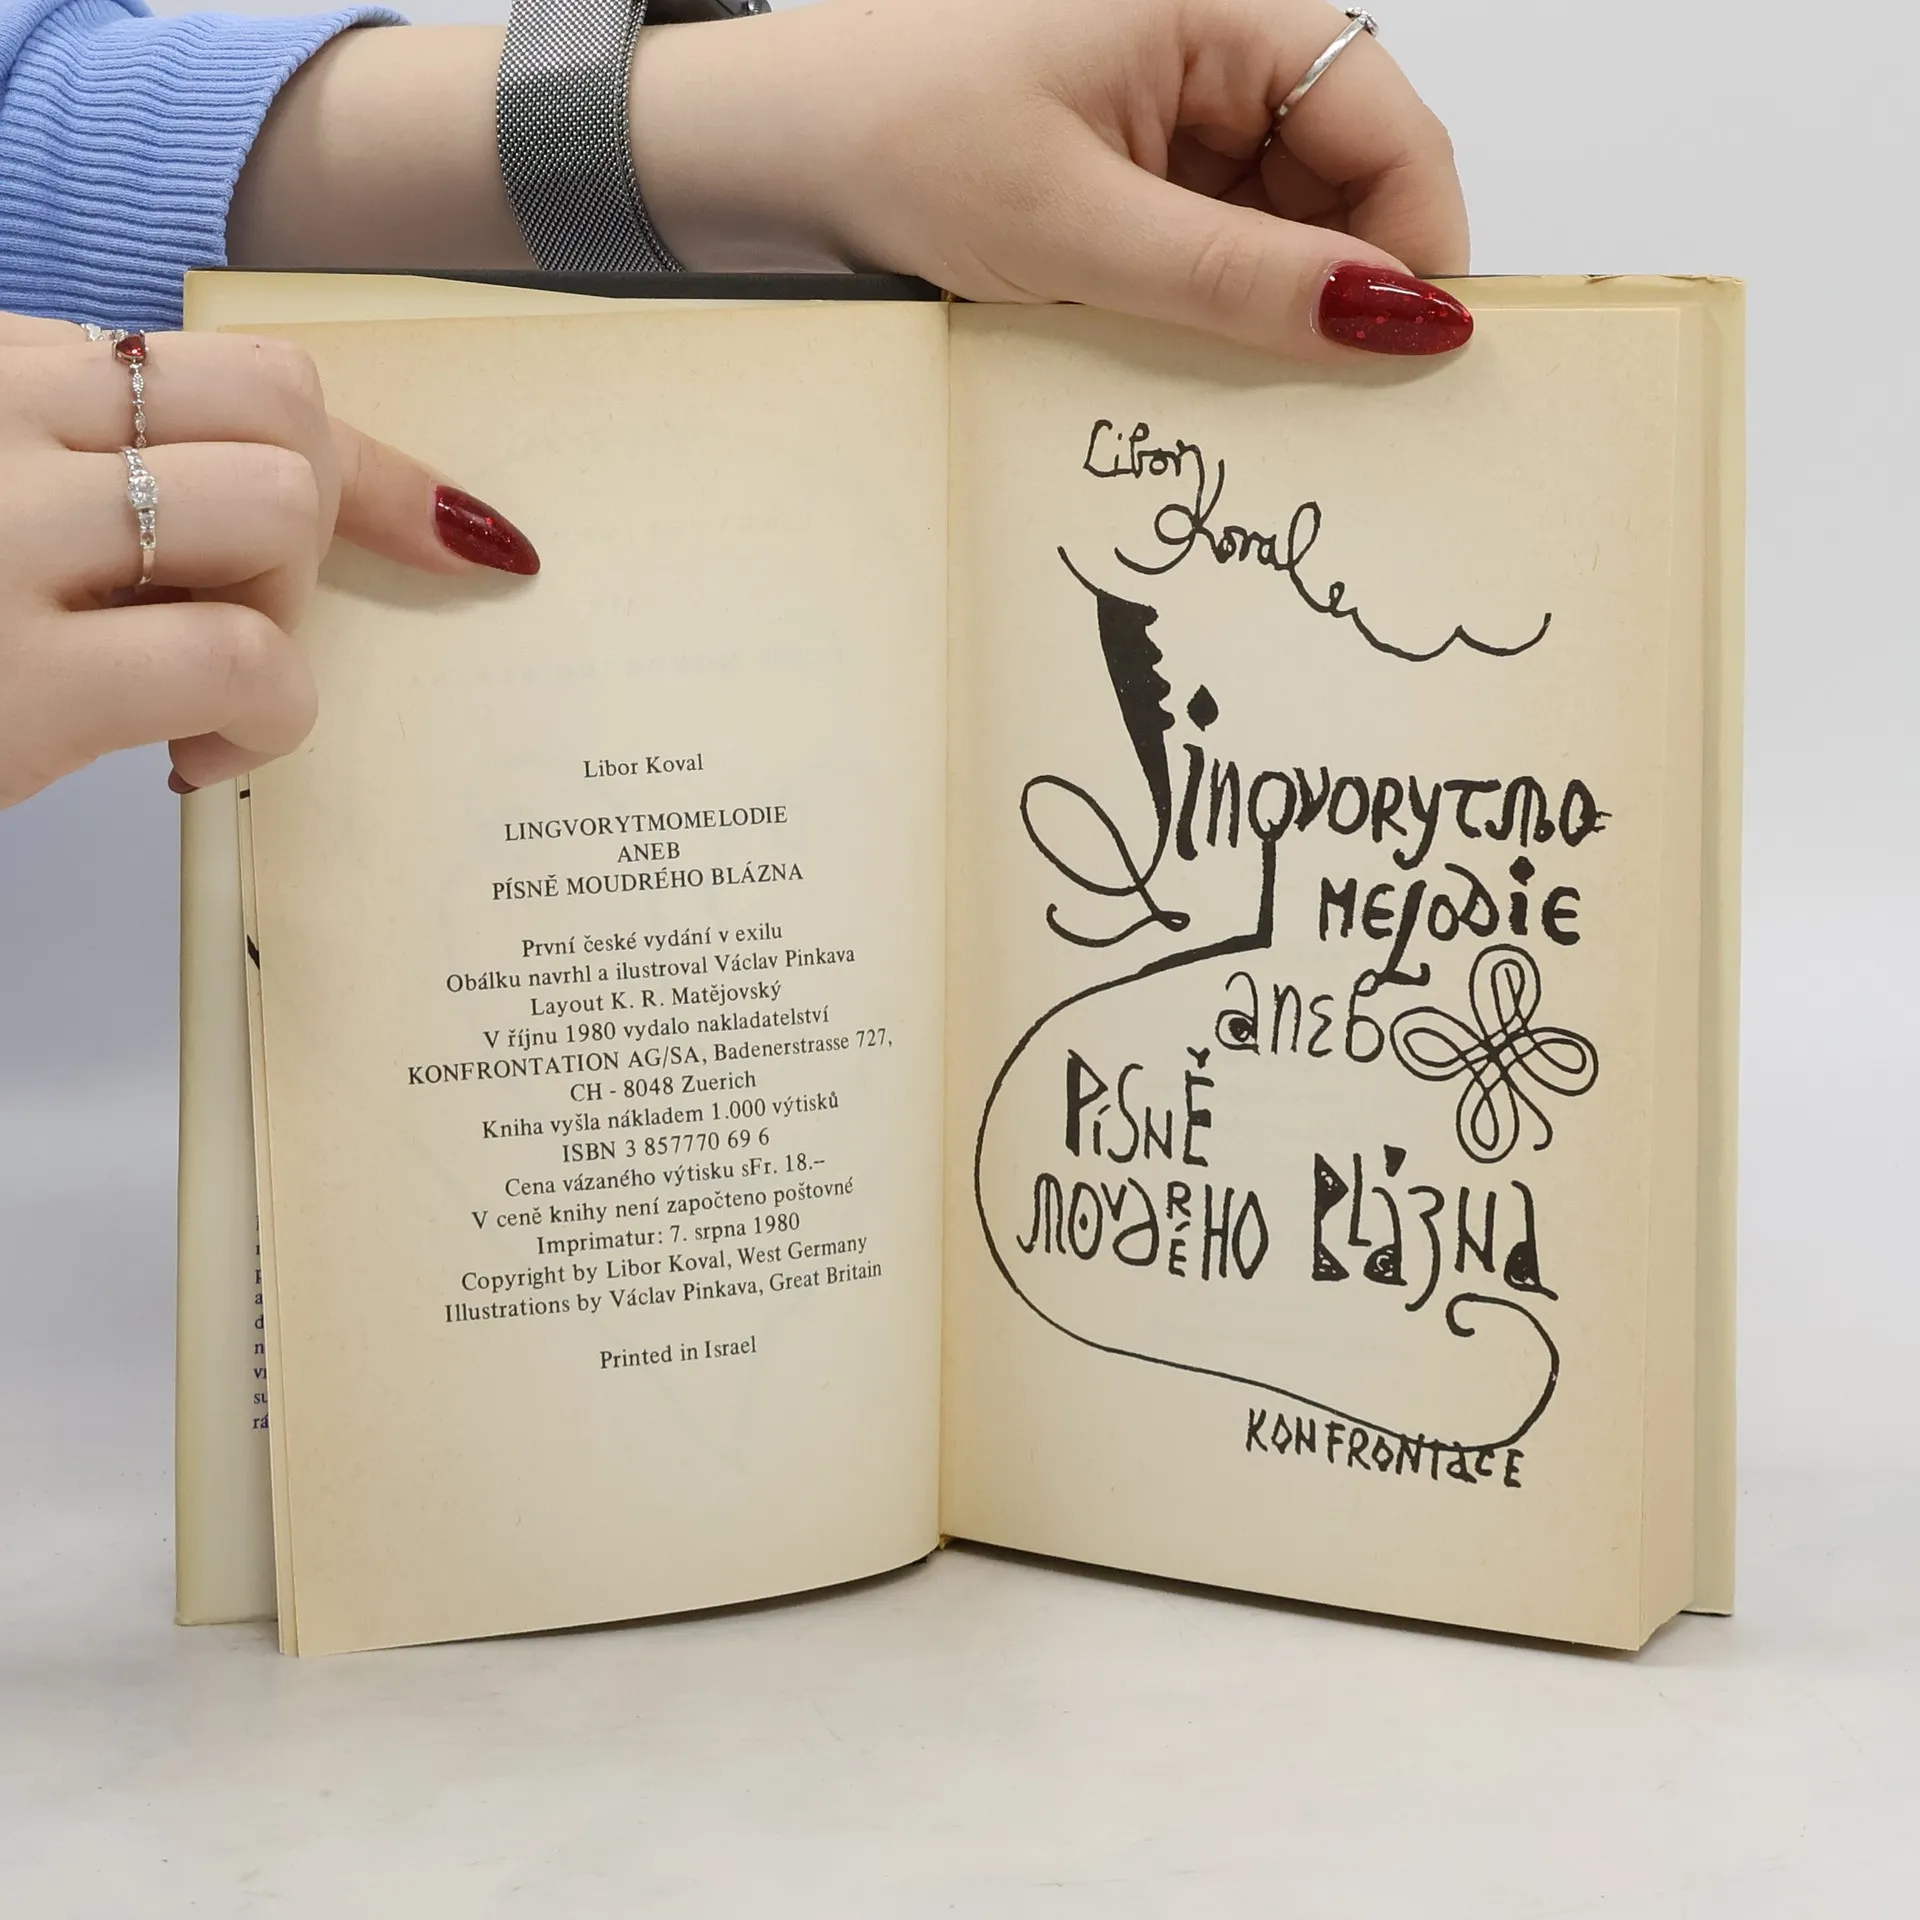 Libor Koval
LINGVORYTMOMELODIE
ANEB
PÍSNĚ MOUDRÉHO BLÁZNA
První české vydání v exilu
Obálku navrhl a ilustroval Václav Pinkava
Layout K. R. Matějovský
V říjnu 1980 vydalo nakladatelství
KONFRONTATION AG/SA, Badenerstrasse 727,
CH - 8048 Zuerich
Kniha vyšla nákladem 1.000 výtisků
ISBN 3 857770 69 6
Cena vázaného výtisku sFr. 18.–
V ceně knihy není započteno poštovné
Imprimatur: 7. srpna 1980
Copyright by Libor Koval, West Germany
Illustrations by Václav Pinkava, Great Britain
Printed in Israel
Libor
Koval
Lingvorytmo
MELODIE
aneb
PíSNĚ
MOUDRÉHO BLÁZNA
KONFRONTACE